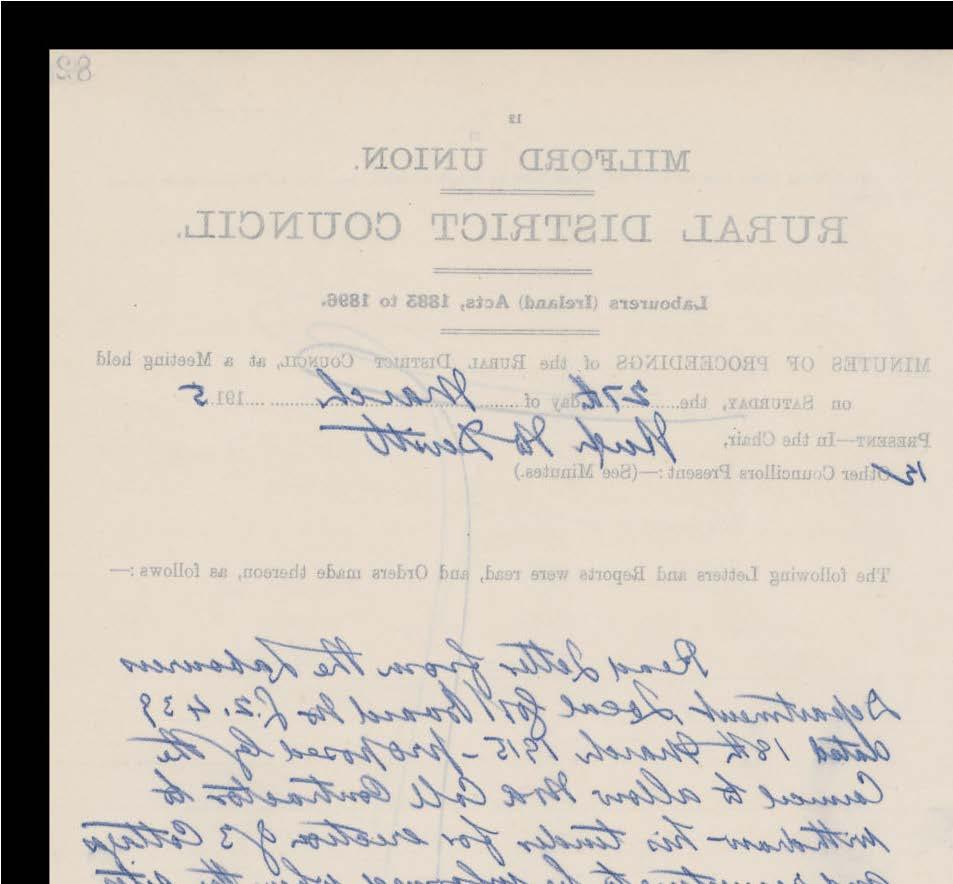 82
12
MILFORD UNION.
RURAL DISTRICT COUNCIL.
Labourers (Ireland) Acts, 1883 to 1896.
MINUTES OF PROCEEDINGS of the RURAL DISTRICT COUNCIL, at a Meeting held
on SATURDAY, the 27th day of March 1915
PRESENT—In the Chair, Hugh
Other Councillors Present:—(See Minutes.)
The following Letters and Reports were read, and Orders made thereon, as follows:—
Read Letter from the Labourers
Department Local Board No L.2.439
dated 18th March 1915 - proposed by the
Council to allow Coll Contractor to
withdraw his tender for erection of 3 Cottages
when the